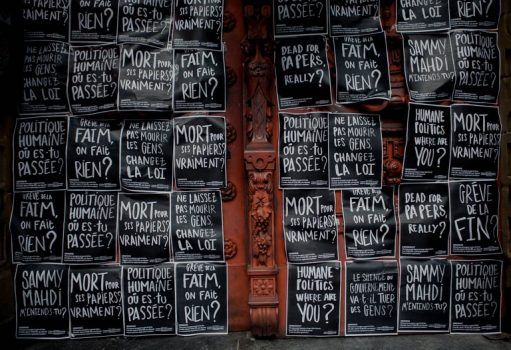 FAIM,
ON FAIT
RIEN?
HUMAINE
OÙ ES-TU
PASSÉE?
MORT POUR
SES PAPIERS?
VRAIMENT?
OÙ ES-TU
PASSÉE?
SES PAPIERS?
VRAIMENT?
CHANGEZ
LA LOI
ON FAIT
RIEN?
NE LAISSEZ
PAS MOURIR
LES GENS,
CHANGEZ
LA LOI
POLITIQUE
HUMAINE
OÙ ES-TU
PASSÉE?
MORT POUR
SES PAPIERS?
VRAIMENT?
FAIM,
ON FAIT
RIEN?
DEAD FOR
PAPERS,
REALLY?
GRÈVE DE LA
FAIM,
ON FAIT
RIEN?
SAMMY
MAHDI
M'ENTENDS TU?
POLITIQUE
HUMAINE
OÙ ES-TU
PASSÉE?
POLITIQUE
HUMAINE
OÙ ES-TU
PASSÉE?
GRÈVE DE LA
FAIM,
ON FAIT
RIEN?
NE LAISSEZ
PAS MOURIR
LES GENS,
CHANGEZ
LA LOI
MORT POUR
SES PAPIERS?
VRAIMENT?
POLITIQUE
HUMAINE
OÙ ES-TU
PASSÉE?
NE LAISSEZ
PAS MOURIR
LES GENS,
CHANGEZ
LA LOI
HUMANE
POLITICS
WHERE ARE
YOU?
MORT POUR
SES PAPIERS?
VRAIMENT?
GRÈVE DE LA
FAIM,
ON FAIT
RIEN?
POLITIQUE
HUMAINE
OÙ ES-TU
PASSÉE?
MORT POUR
SES PAPIERS?
VRAIMENT?
NE LAISSEZ
PAS MOURIR
LES GENS,
CHANGEZ
LA LOI
MORT POUR
SES PAPIERS?
VRAIMENT?
GRÈVE DE LA
FAIM,
ON FAIT
RIEN?
DEAD FOR
PAPERS,
REALLY?
GRÈVE
DE LA
FIN?
SAMMY
MAHDI
M'ENTENDS TU?
MORT POUR
SES PAPIERS?
VRAIMENT?
POLITIQUE
HUMAINE
OÙ ES-TU
PASSÉE?
GRÈVE DE LA
FAIM,
ON FAIT
RIEN?
HUMANE
POLITICS
WHERE ARE
YOU?
LE SILENCE DU
GOUVERNEMENT
VA-T-IL TUER
DES GENS?
SAMMY
MAHDI
M'ENTENDS TU?
POLITIQUE
HUMAINE
OÙ ES-TU
PASSÉE?